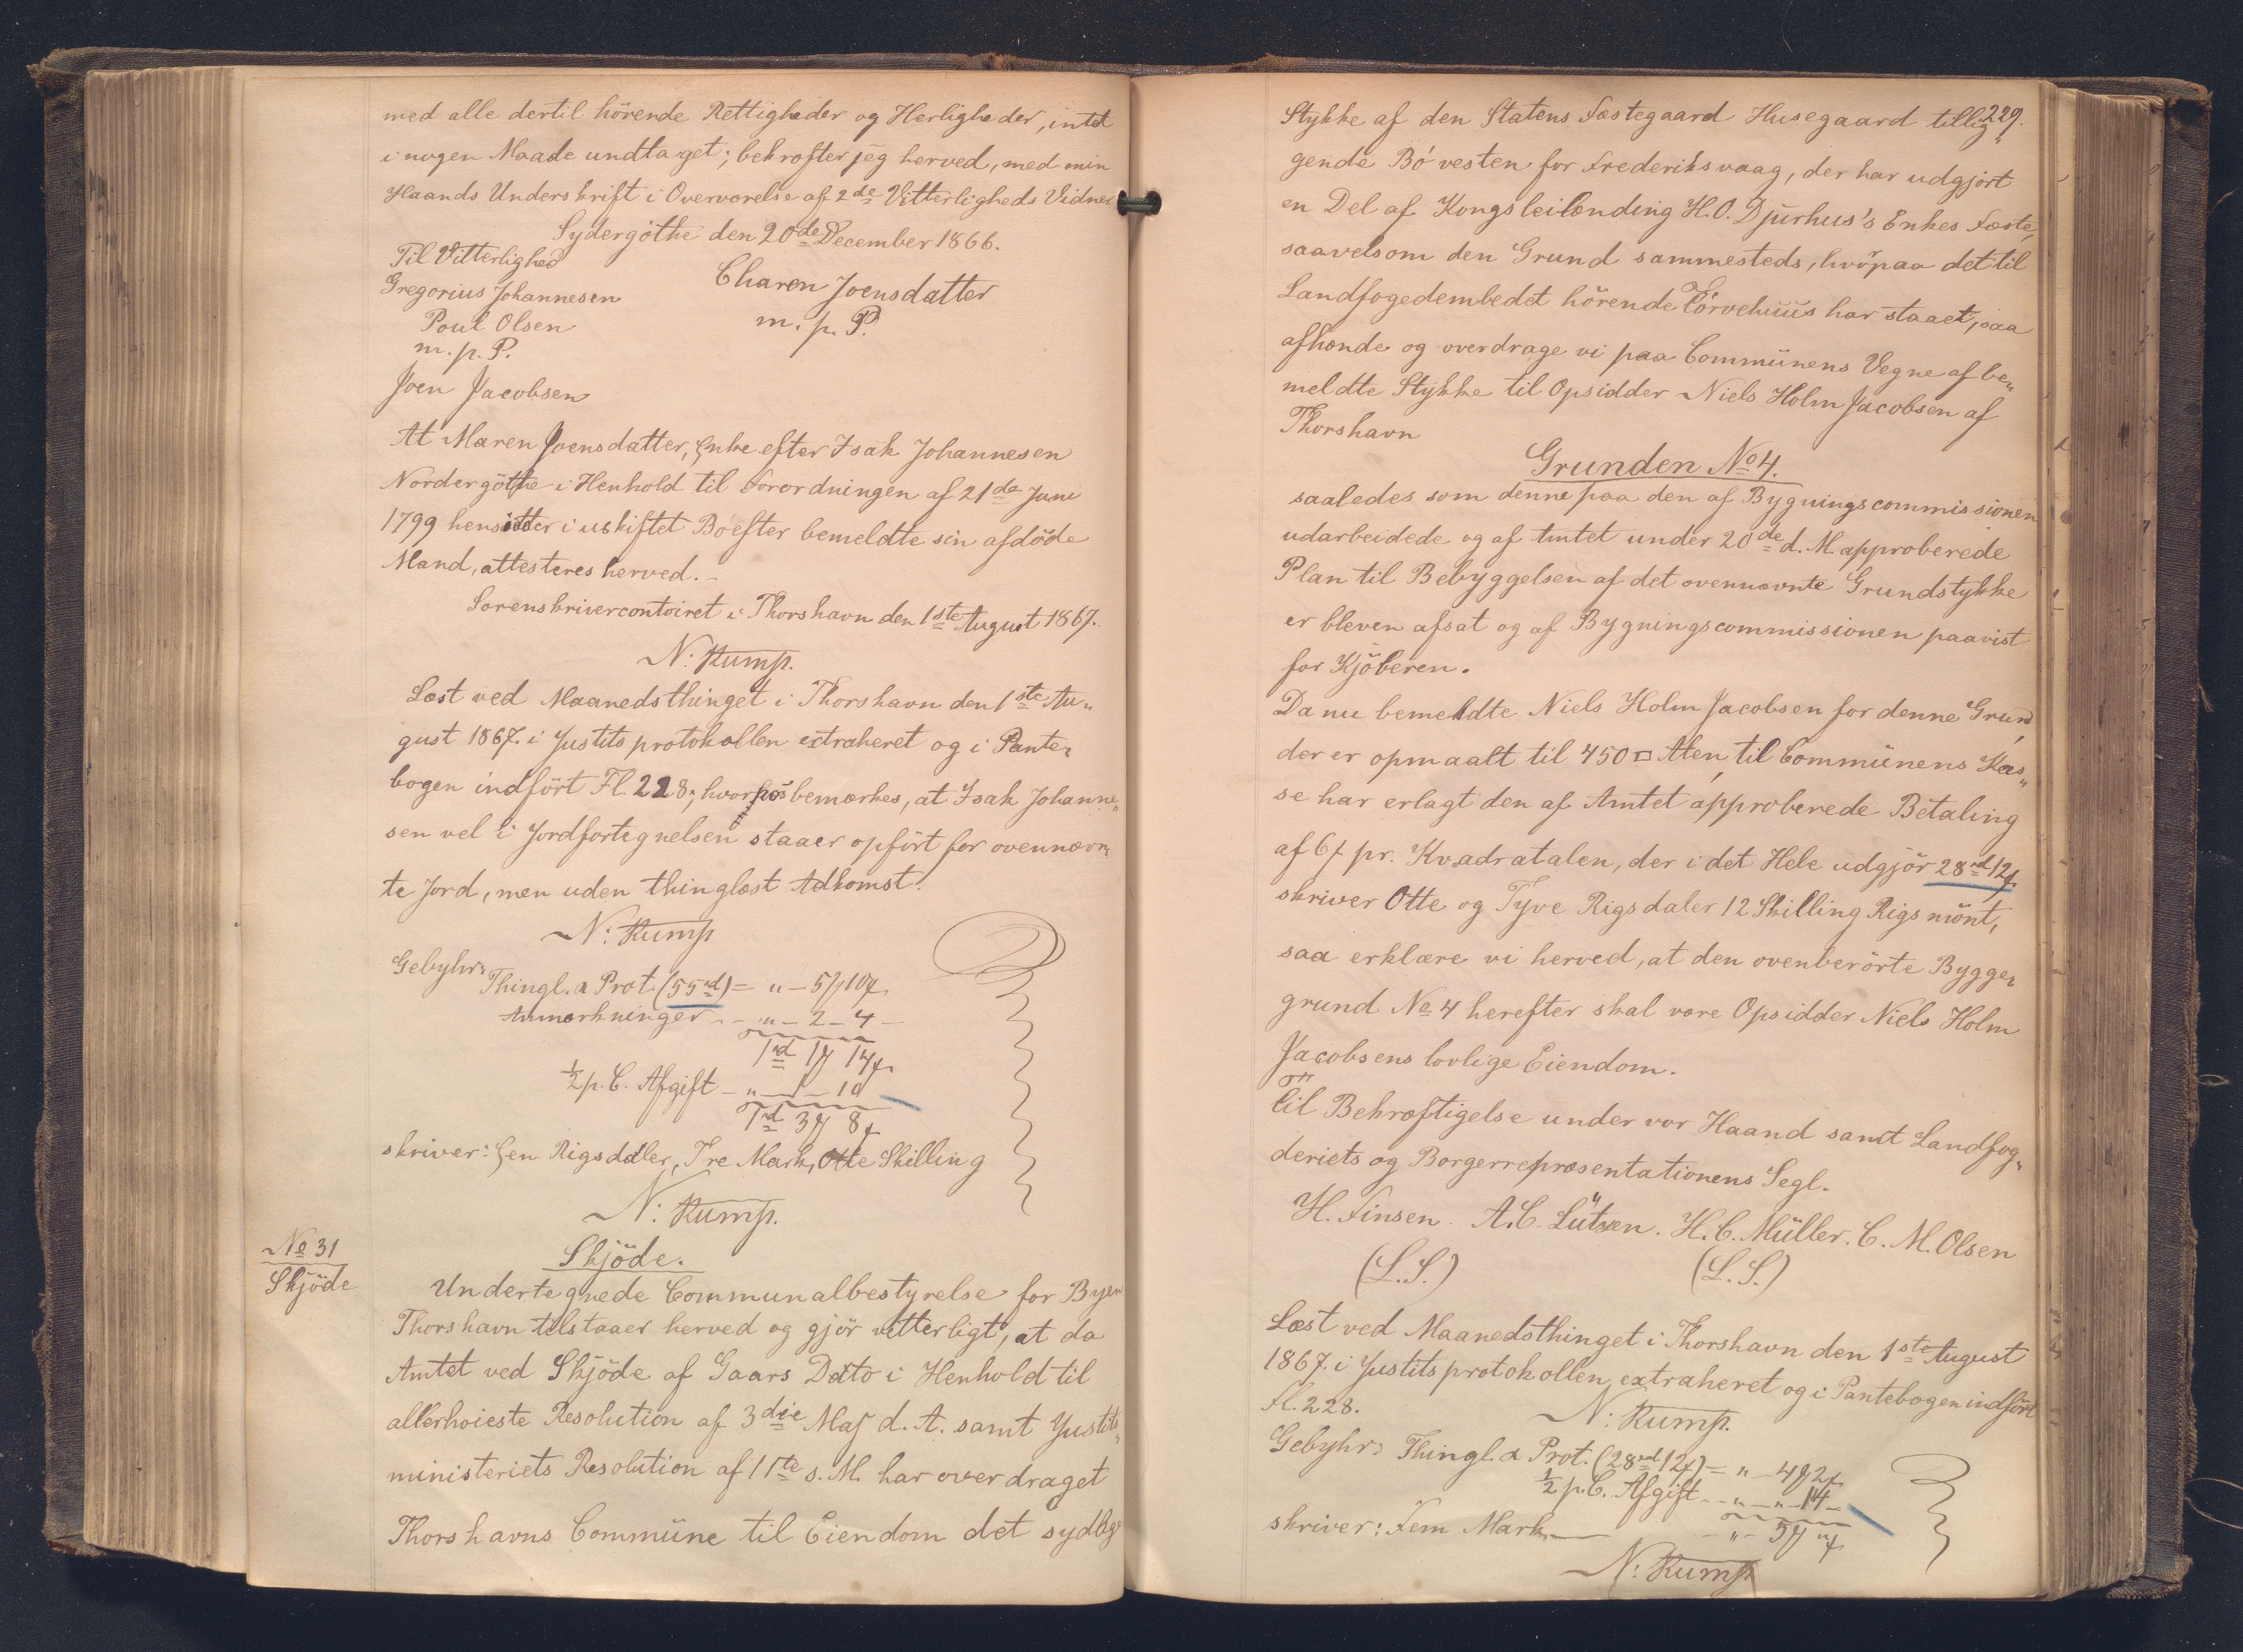 med alle dertil hörende Rettigheder og Herligheder, intet
i nogen Maade undtaget; bekræfter jeg herved, med min
Haands Underskrift i Overværelse af 2de Vitterligheds Vidner
Sydergöthe den 20de December 1866.
Til Vitterlighed
Gregorius Johannesen
Charen Joensdatter
Poul Olsen
m. p. P.
m. p. P.
Joen Jacobsen
At Maren Joensdatter, Enke efter Isak Johannesen
Nordergöthe i Henhold til Forordningen af 21de Juni
1799 hensidder i uskiftet Bo efter bemeldte sin afdöde
Mand, attesteres herved.-
Sorenskrivercontoiret i Thorshavn den 1ste August 1867.
N. Rump.
Læst ved Maanedsthinget i Thorshavn den 1ste Au„
gust 1867. i Justitsprotokollen extraheret og i Pante„
bogen indfört Fl. 228; hvorhos bemærkes, at Isak Johanne„
sen vel i Jordfortegnelsen staaer opfört for ovennævn„
te Jord, men uden thinglæst Adkomst.
N: Rump
Gebyhr:
Thingl. a Prot. (55rd) = „ - 5 10
Anmærkninger - - „ - 2 - 4 -
1rd 1 14
½ p. C. Afgift - „ - 1 - 10
1rd 3 8
skriver: Een Rigsdaler, Tre Mark, Otte Skilling
N: Rump.
No 31
Skjöde
Skjöde.
Undertegnede Communalbestyrelse for Byen
Thorshavn tilstaaer herved og gjör vitterligt, at da
Amtet ved Skjöde af Gaars Dato i Henhold til
allerhoieste Resolution af 3die Maj d. A. samt Justits„
ministeriets Resolution af 11te s. M. har overdraget
Thorshavns Commüne til Eiendom det sydlige
229.
Stykke af den Statens Fæstegaard Husegaard tillig„
gende Bö vesten for Frederiksvaag, der har udgjört
en Del af Kongsleilænding H. O. Djurhus's Enkes Fæste,
saavelsom den Grund sammesteds, hvorpaa det til
Landfogedembedet hörende Törvehuus har staaet, saa
afhænde og overdrage vi paa Commünens Vegne af be„
meldte Stykke til Opsidder Niels Holm Jacobsen af
Thorshavn
Grunden No 4.
saaledes som denne paa den af Bygningscommissionen
udarbeidede og af Amtet under 20de d. M. approberede
Plan til Bebyggelsen af det ovennævnte Grundstykke
er bleven afsat og af Bygningscommissionen paavist
for Kjöberen.
Da nu bemeldte Niels Holm Jacobsen for denne Grund,
der er opmaalt til 450 □ Alen, til Commünens Kas„
se har erlagt den af Amtet approberede Betaling
af 6 pr. Kvadratalen, der i det Hele udgjör 28rd 12
skriver Otte og Tyve Rigsdaler 12 Skilling Rigsmönt,
saa erklære vi herved, at den ovenberörte Bygge„
grund No 4 herefter skal være Opsidder Niels Holm
Jacobsens lovlige Eiendom.
Til Bekræftigelse under vor Haand samt Landfog„
deriets og Borgerrepræsentationens Segl.
H. Finsen. A. C. Lützen. H. C. Müller. C. M. Olsen
(L. S.) (L. S.)
Læst ved Maanedsthinget i Thorshavn den 1ste August
1867. i Justitsprotokollen extraheret og i Pantebogen indfört
Fl. 228.
N: Rump.
Gebyhr: Thingl. a Prot. (28rd 12) = „ - 4 2
½ p. C. Afgift - - „ - „ - 14 -
skriver: Fem Mark - „ - 5 „
N: Rump